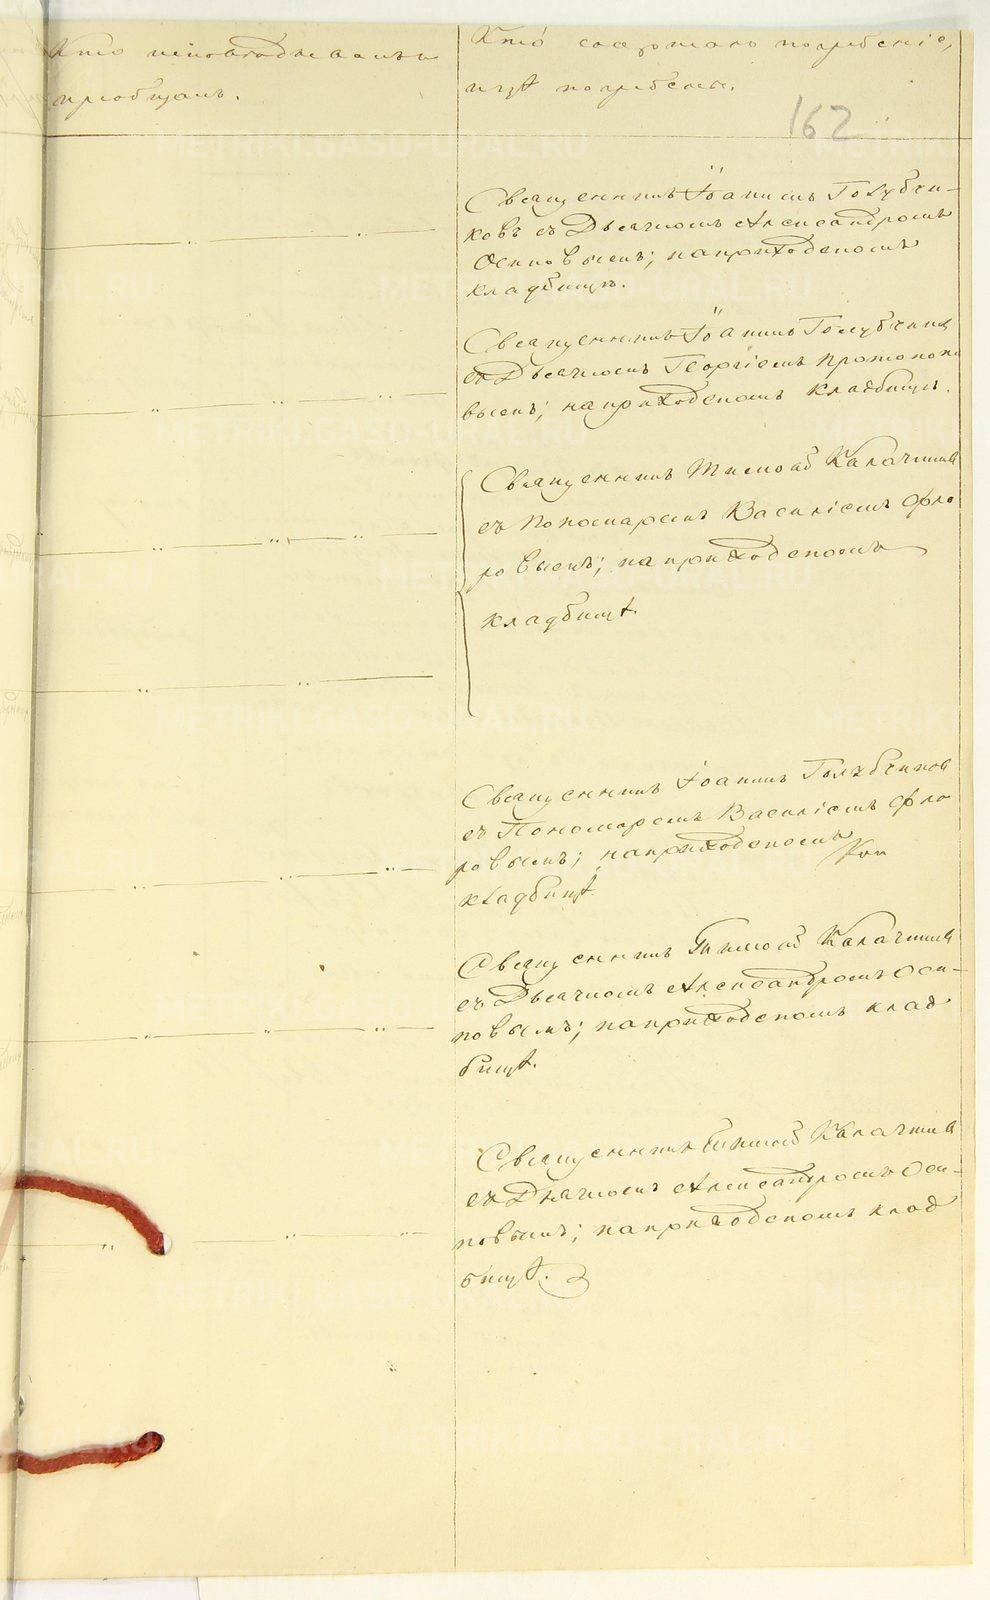 Кто исповѣдывалъ и
пріобщалъ.
Кто совершалъ погребеніе,
и гдѣ погребены.
162
Священникъ Іоаннъ Голубчи-
ковъ съ Дьячкомъ Александромъ
Осиповымъ; на приходскомъ
кладбищѣ.
Священникъ Іоаннъ Голубчиков
съ Дьячкомъ Георгіемъ Протопопо
вымъ; на приходскомъ кладбищѣ.
Священникъ Тимофей Калачников
съ Пономаремъ Василіемъ Фло
ровымъ; на приходскомъ
кладбищѣ.
Священникъ Іоаннъ Голубчиков
съ Пономаремъ Василіемъ Фло
ровымъ; на приходскомъ
кладбищѣ
Священникъ Тимофей Калачников
съ Дьячкомъ Александромъ Оси-
повымъ; на приходскомъ клад
бищѣ.
Священникъ Тимофей Калачников
съ Дьячкомъ Александромъ Оси-
повымъ; на приходскомъ клад
бищѣ.
METRIKI.GASO-URAL.RU